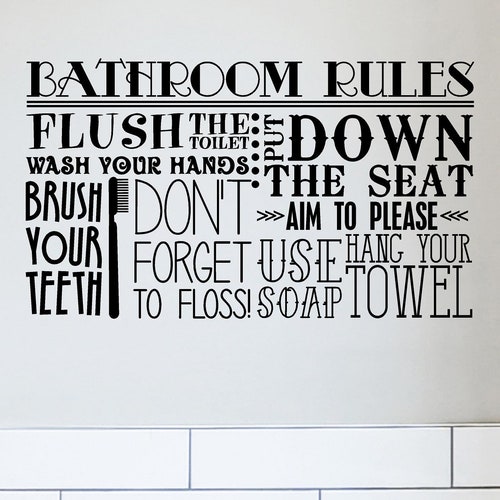 BATHROOM RULES
FLUSH THE TOILET
WASH YOUR HANDS
PUT DOWN
THE SEAT
AIM TO PLEASE
BRUSH
YOUR
TEETH
DON'T
FORGET
TO FLOSS!
USE
SOAP
HANG YOUR
TOWEL